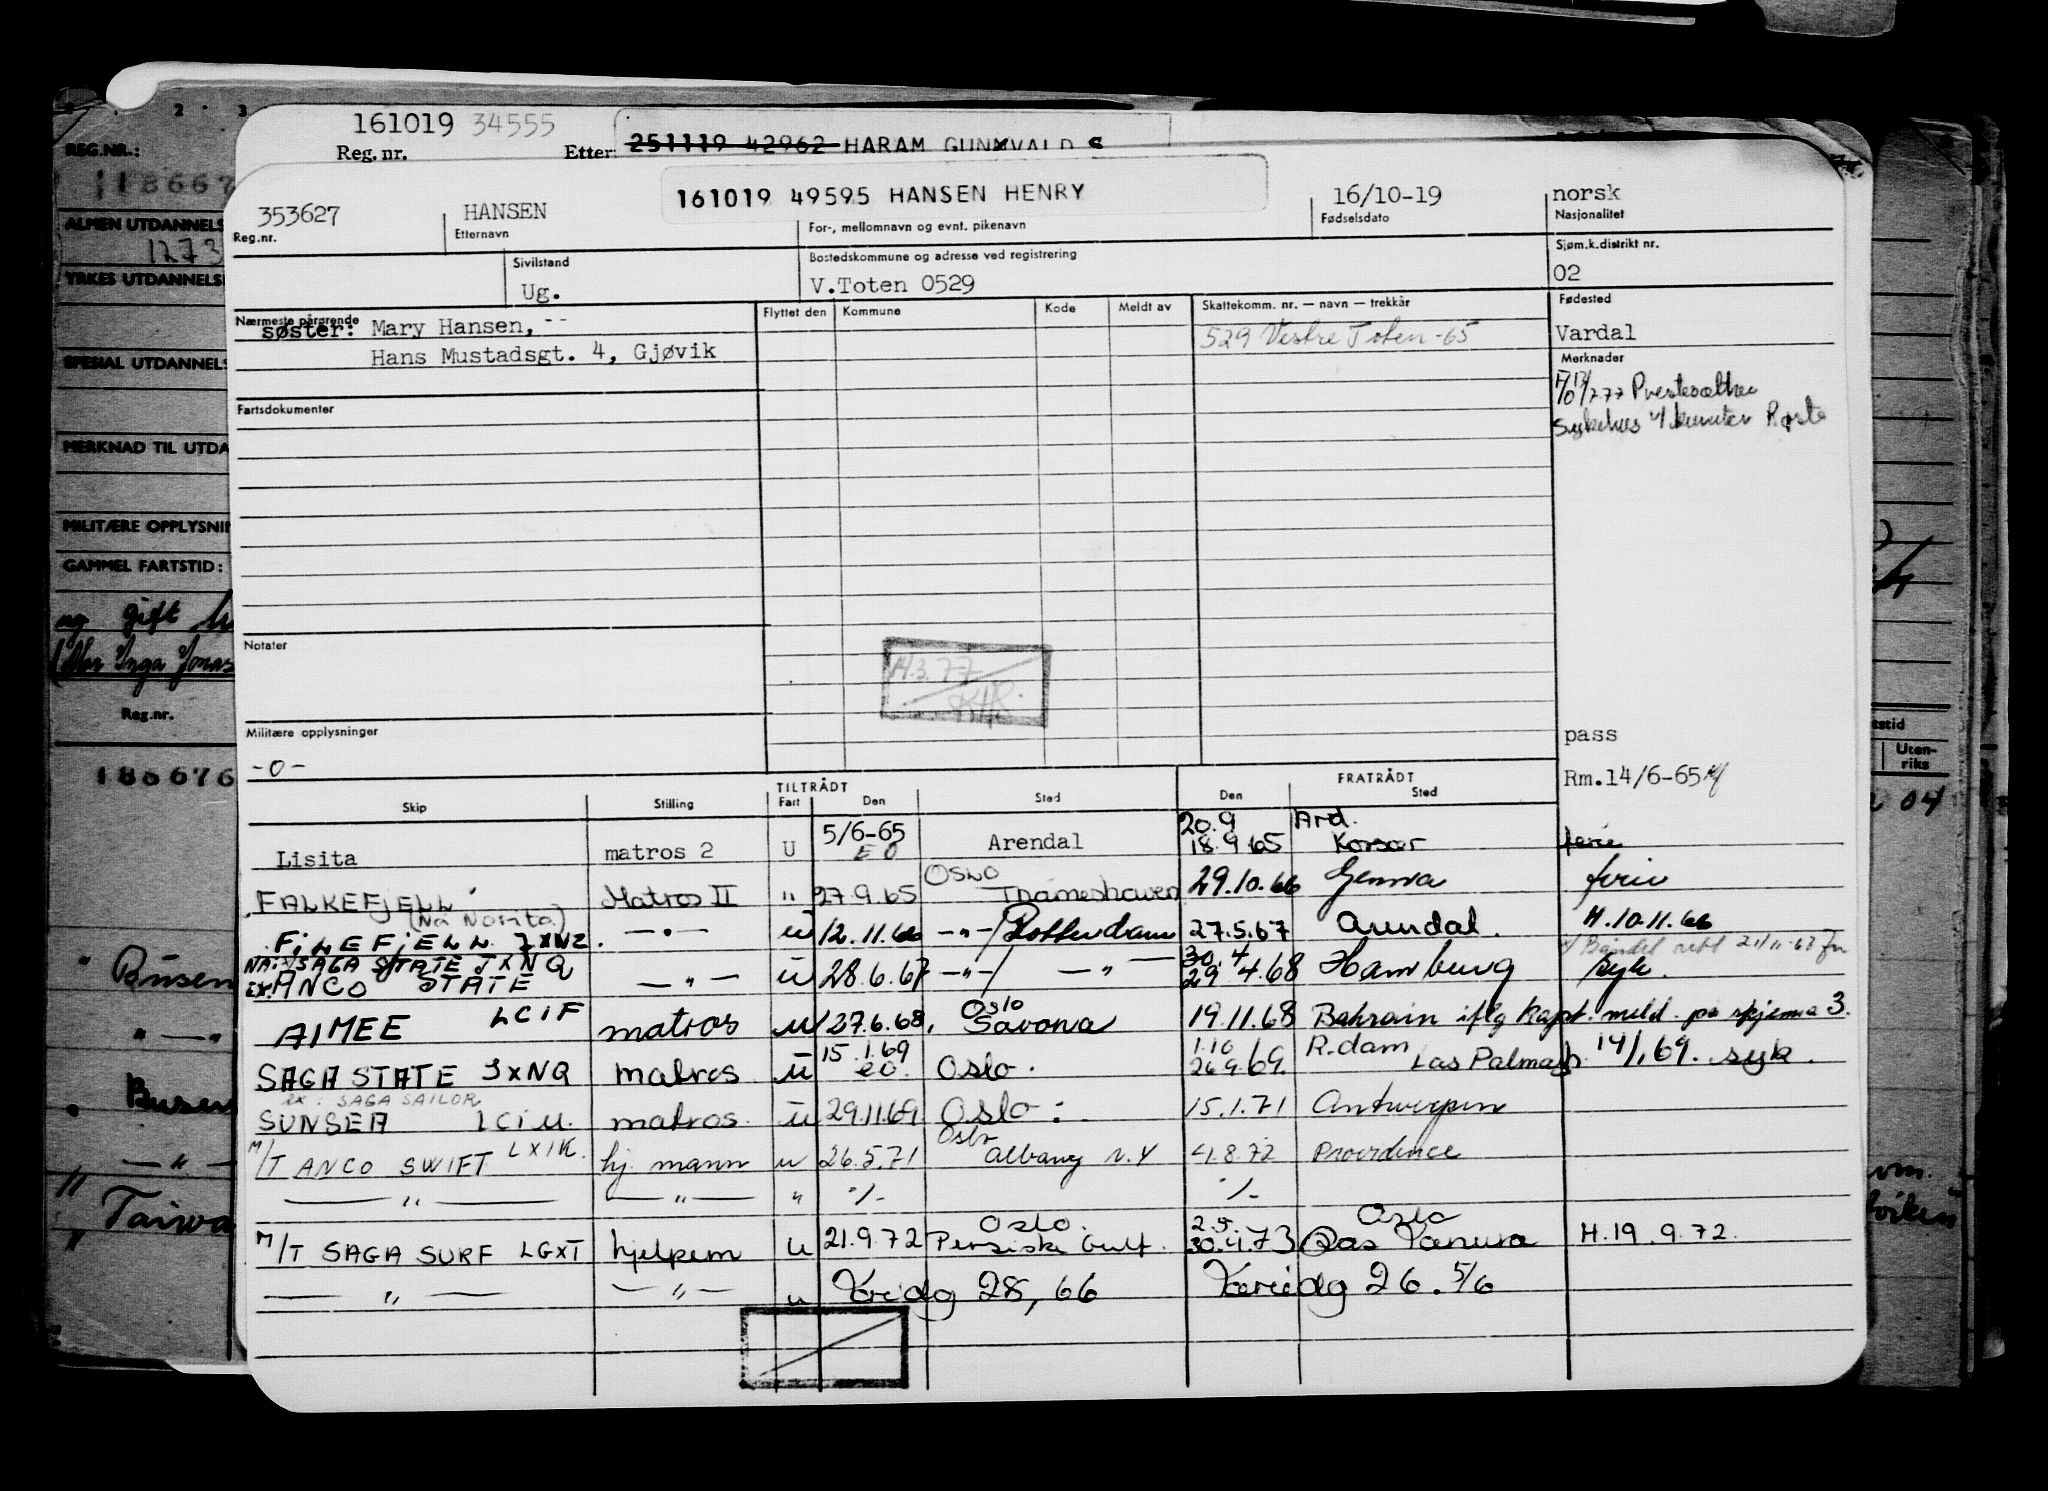 161019 34555
Reg. nr.
Etter
251119 42962 HARAM GUNNVALD S
REG.NR.:
ALMEN UTDANNELS
1273
YRKES UTDANNELSE
SPESIAL UTDANNELS
MERKNAD TIL UTDA
MILITÆRE OPPLYSNIN
GAMMEL FARTSTID:
gift
Reg.nr.
188676
" Busen
" — " —
Busen
— " —
" Taiwa
353627
Reg.nr.
HANSEN
Etternavn
161019 49595 HANSEN HENRY
For-, mellomnavn og evnt. pikenavn
16/10-19
Fødselsdato
norsk
Nasjonalitet
Sivilstand
Ug.
Bostedskommune og adresse ved registrering
V.Toten 0529
Sjøm.k.distrikt nr.
02
Nærmeste pårørende
søster: Mary Hansen, --
Hans Mustadsgt. 4, Gjøvik
Flyttet den
Kommune
Kode
Meldt av
Skattekomm. nr. — navn — trekkår
529 Vestre Toten -65
Fødested
Vardal
Merknader
Fartsdokumenter
Notater
Militære opplysninger
-0-
pass
Rm.14/6-65
TILTRÅDT
FRATRÅDT
Skip Stilling Fart Den Sted Den Sted
20.9 Ard.
Lisita matros 2 U 5/6-65 EO Arendal 18.9 65 Korsør ferie
Oslo
FALKEFJELL Matros II " 27.9.65 Thameshaven 29.10.66 Genova ferie
(Nå Norita)
FILEFJELL JXNZ. — " — u 12.11.66 — " —/Rotterdam 27.5.67 Arendal. H.10.11.66
NÅ: SAGA STATE JXNQ
ex. ANCO STATE — " — u 28.6.67 — " —/ — " — 30.4 29 4.68 Hamburg syk.
Oslo
AIMEE LCIF matros u 27.6.68, Savona 19.11.68 Bahrain iflg kapt. meld. på skjema 3.
SAGA STATE JXNQ matros u 15.1.69 EO. Oslo. 1.10 26.9.69. R.dam Las Palmas 14/1.69. syk.
ex: SAGA SAILOR
SUNSEA LCIU. matros. u 29.11.69 Oslo: 15.1.71 Antwerpen
Oslo
M/T ANCO SWIFT LXIK. hj. mann u 26.5.71 Albany N.Y 4.8.72 Providence
— " — — " — " -/- -/-
Oslo. 2.5. Oslo
M/T SAGA SURF LGXT hjelpem u 21.9.72 Persiske Gulf. 30.4.73 Ras Tanura H.19.9.72.
— " — — " — u Karidg 28, 66 Karidg 26. 5/6
tstid
Uten-
riks
04